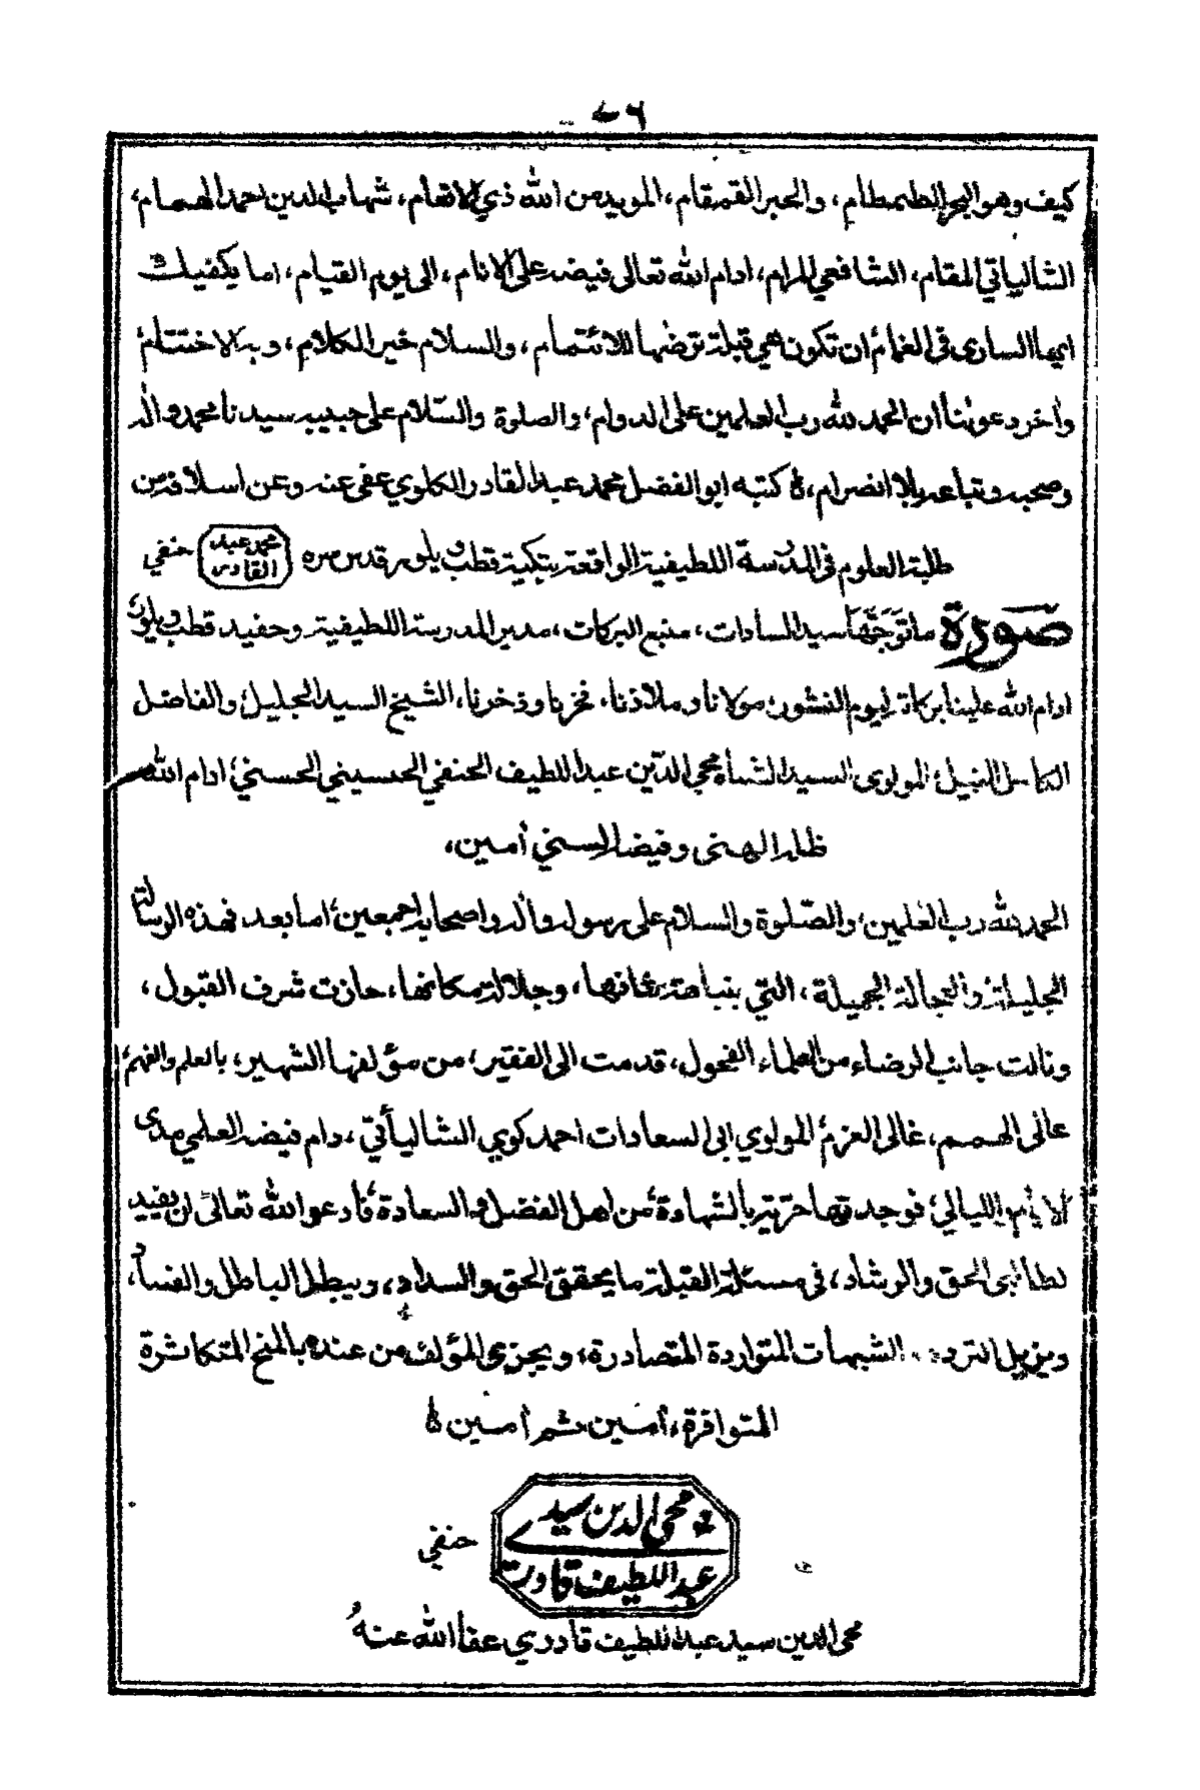 ٧٦
كيف وهو البحر الطمطام، والحبر القمقام، المويد من الله ذي الانعام، شهاب الدين احمد الهمام،
الشالياتي المقام، الشافعي المرام، ادام الله تعالى فيضه على الانام، الى يوم القيام، اما يكفيك
ايها السارى فى الغمائم ان تكون هي قبلة ترضها للائتمام، والسلام خير الكلام، وبه الاختتام
وأخر دعوٰنا أن الحمد لله رب العٰلمين على الدوام، والصلوة والسّلام على حبيبه سيدنا محمد واٰله
وصحبه وتباعه بلا انصرام، كتبه ابو الفضل محمد عبد القادر الكلوي عفي عنه وعن اسلافه من
طلبة العلوم فى المدرسة اللطيفية الواقعة بتكية قطب ويلور قدس سره محمد عبد القادر حنفي
صورة ما توجها سيد السادات، منبع البركات، مدير المدرسة اللطيفية وحفيد قطب ويلور،
ادام الله علينا بركاته ليوم النشور، مولانا وملاذنا، فخرنا وذخرنا، الشيخ السيد الجليل، والفاضل
الكامل النبيل، المولوى السيد الشاه محي الدّين عبد اللطيف الحنفي الحسيني الحسني، ادام الله
ظله الهنى وفيضه السني أمين،
الحمد لله رب العٰلمين، والصّلوة والسلام على رسوله وأله واصحابه اجمعين، اما بعد فهذه الرسالة
الجليلة والعجالة الجميلة، التي بنباهة شانها، وجلالة مكانها، حازت شرف القبول،
ونالت جانب الرضاء من العلماء الفحول، قدمت الى الفقير، من مؤلفها الشهير، بالعلم والفهم،
عالى الهمم، غالى العزم، المولوي ابى السعادات احمد كوي الشالياتي، دام فيضه العلمي مدى
الايام والليالي، فوجدتها حرية بالشهادة، من اهل الفضل والسعادة، فأدعو الله تعالى ان يفيد
لطالبى الحق والرشاد، فى مسئلة القبلة ما يحقق الحق والسداد، ويبطل الباطل والفساد،
ويزيل الترد الشبهات المتواردة المتصادرة، ويجزى المؤلف من عنده بالمنح المتكاثرة
المتوافرة، أمين ثم أمين
محي الدين سيد
عبد اللطيف قادري
حنفي
محي الدين سيد عبد اللطيف قادري عفا الله عنه